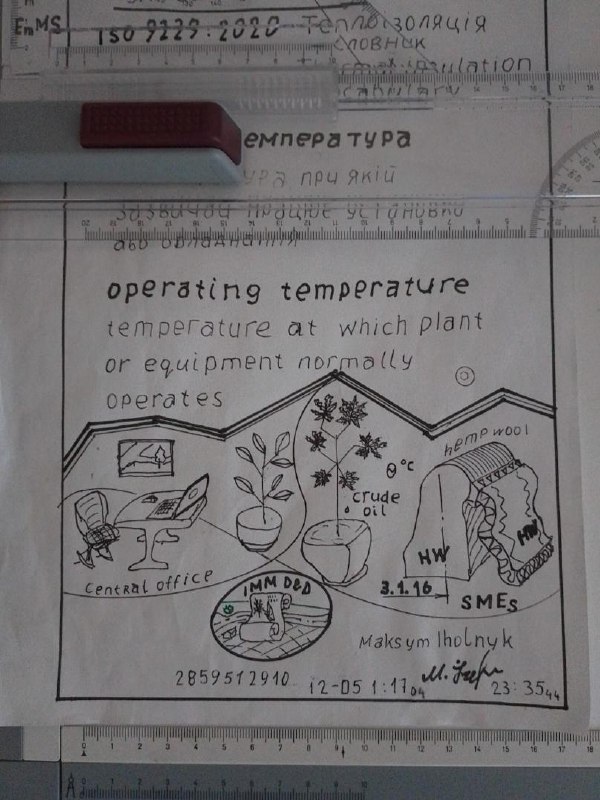 EnMS
ISO 9229:2020
Теплоізоляція
словник
operating temperature
temperature at which plant
or equipment normally
operates
при якій
зазвичай працює установка
або обладнання
hemp wool
θ°C
crude
oil
HW
HW
3.1.16
SMEs
Central office
IMM D&D
Maksym Iholnyk
2859512910
12-05 1:17 04
23:35 44